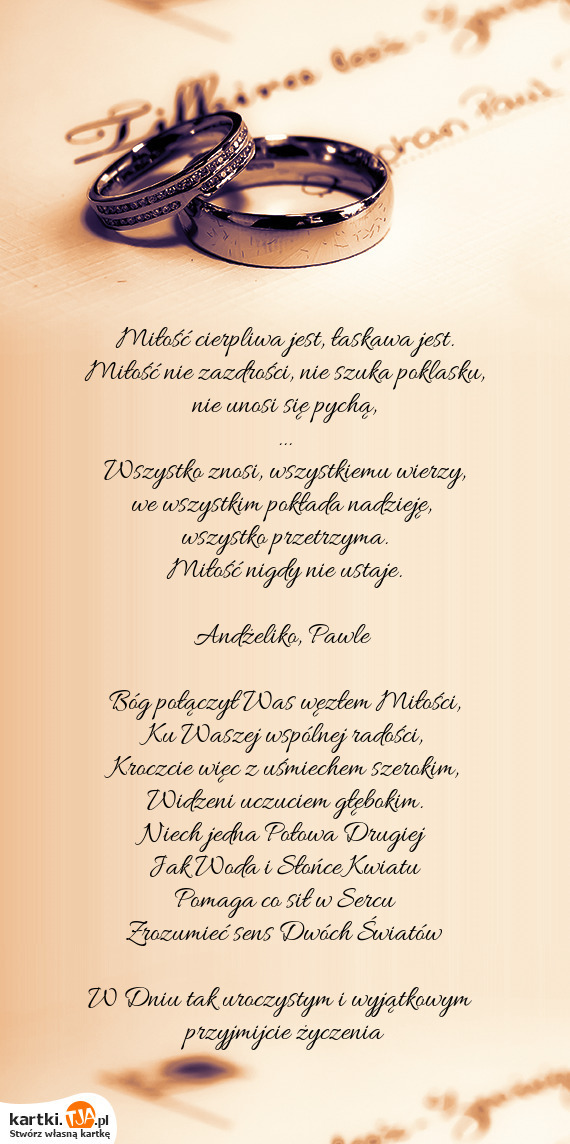 Miłość cierpliwa jest, łaskawa jest.
Miłość nie zazdrości, nie szuka poklasku,
nie unosi się pychą,
...
Wszystko znosi, wszystkiemu wierzy,
we wszystkim pokłada nadzieję,
wszystko przetrzyma.
Miłość nigdy nie ustaje.
Andżeliko, Pawle
Bóg połączył Was węzłem Miłości,
Ku Waszej wspólnej radości,
Kroczcie więc z uśmiechem szerokim,
Widzeni uczuciem głębokim.
Niech jedna Połowa Drugiej
Jak Woda i Słońce Kwiatu
Pomaga co sił w Sercu
Zrozumieć sens Dwóch Światów
W Dniu tak uroczystym i wyjątkowym
przyjmijcie życzenia
kartki.TJA.pl
Stwórz własną kartkę